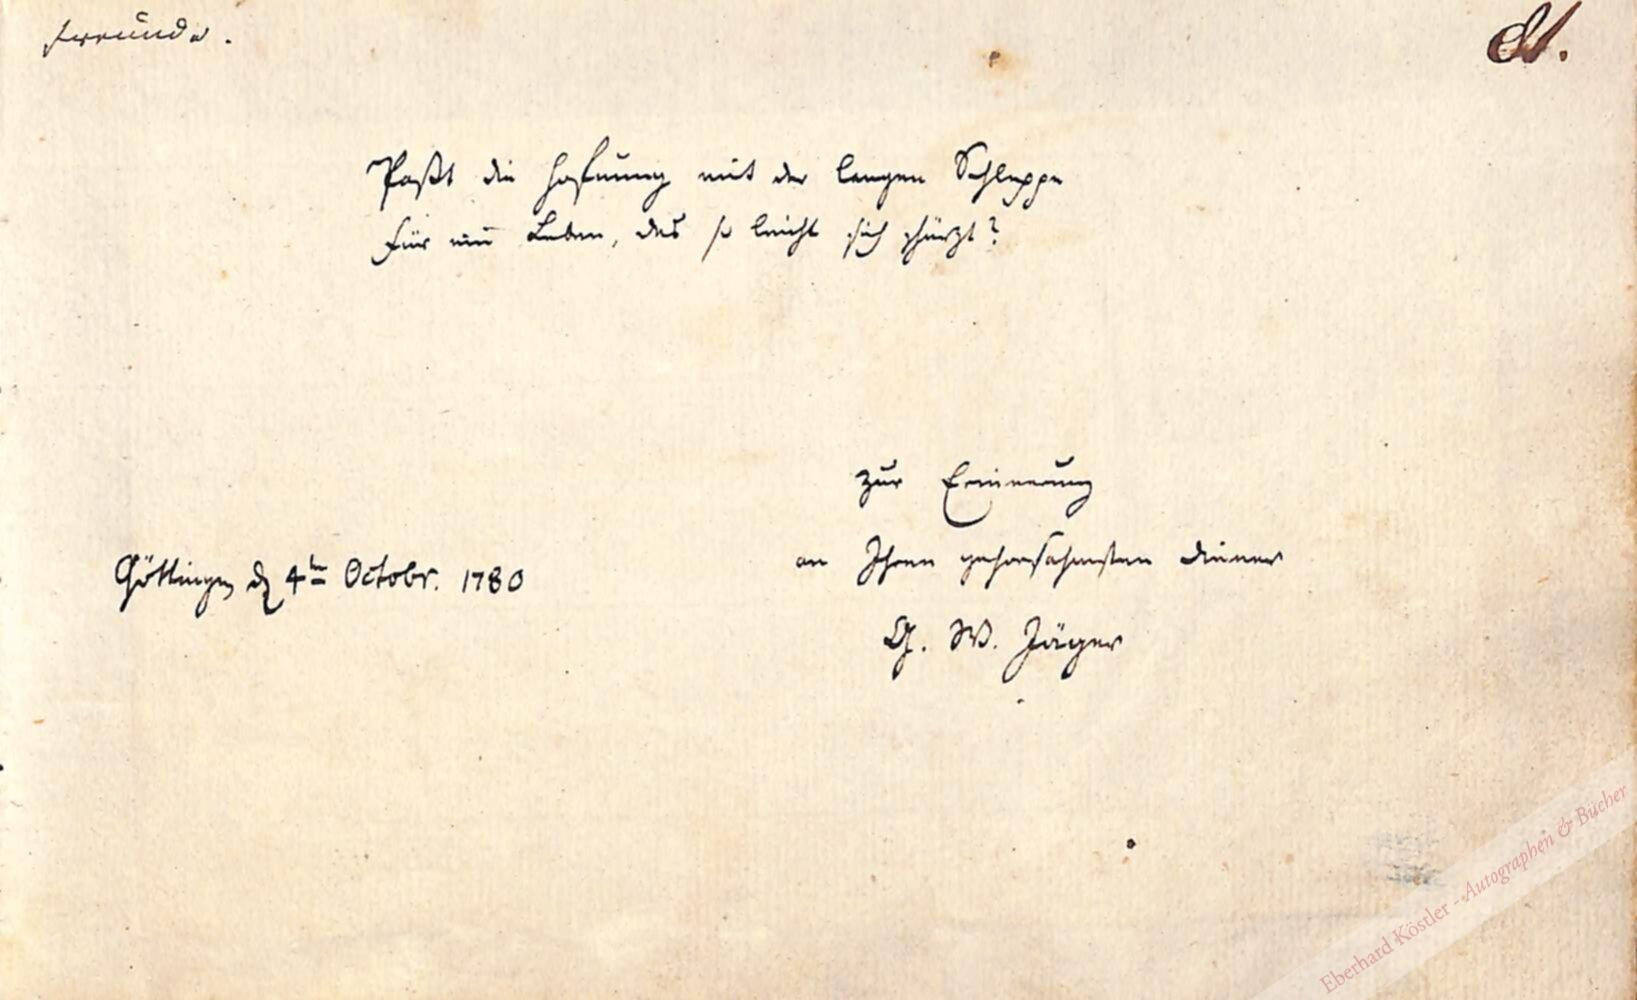 Freunde.
Paßt die Hofnung mit der langen Schleppe
Für ein Leben, das so leicht sich schürzt?
zur Erinnerung
an Ihren gehorsahmsten Diener
Göttingen d 4ten Octobr. 1780
G. W. Jäger
Eberhard Köstler - Autographen & Bücher